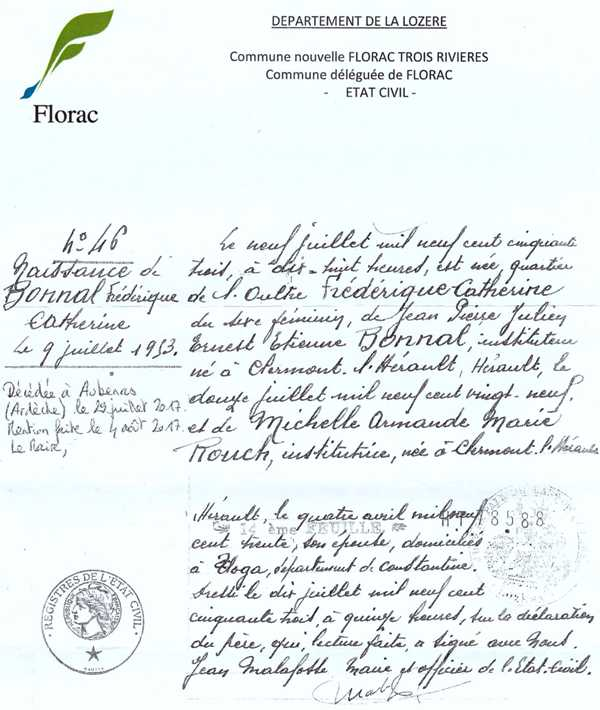 DEPARTEMENT DE LA LOZERE
Commune nouvelle FLORAC TROIS RIVIERES
Commune déléguée de FLORAC
- ETAT CIVIL -
Florac
N° 46
Naissance de
Bonnal Frédérique
Catherine
Le 9 juillet 1953.
Décédée à Aubenas
(Ardèche) le 29 juillet 2017.
Mention faite le 4 août 2017.
Le Maire,
Le neuf juillet mil neuf cent cinquante
trois, à dix-huit heures, est née, quartier
de l'Oultre Frédérique Catherine
du sexe féminin, de Jean Pierre Julien
Ernest Etienne Bonnal, instituteur
né à Clermont-l'Hérault, Hérault, le
douze juillet mil neuf cent vingt-neuf.
et de Michelle Armande Marie
Rouch, institutrice, née à Clermont-l'Hérault
Hérault, le quatre avril mil neuf
14 ème FEUILLE
8588
cent trente, son épouse, domiciliés
à département de Constantine.
Dressé le dix juillet mil neuf cent
cinquante trois, à quinze heures, sur la déclaration
du père, qui, lecture faite, a signé avec Nous.
Jean Malafosse Maire et officier de l'Etat-Civil.
REGISTRES DE L'ETAT CIVIL